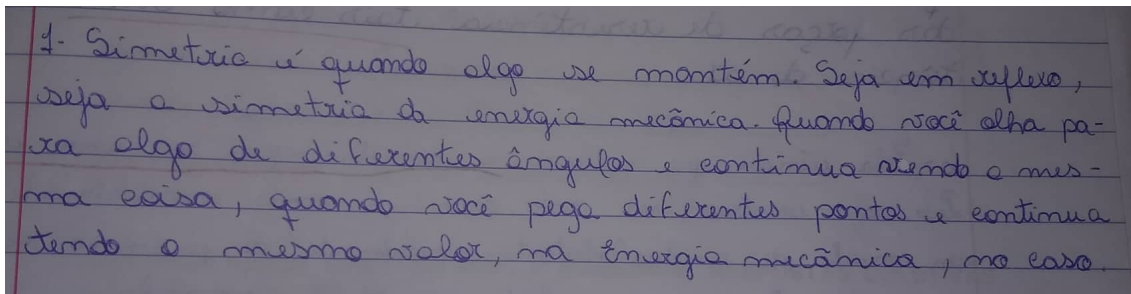 1- Simetria é quando algo se mantém. Seja em reflexo,
seja a simetria da energia mecânica. Quando você olha pa-
ra algo de diferentes ângulos e continua vendo a mes-
ma coisa, quando você pega diferentes pontos e continua
tendo o mesmo valor, na Energia mecânica, no caso.